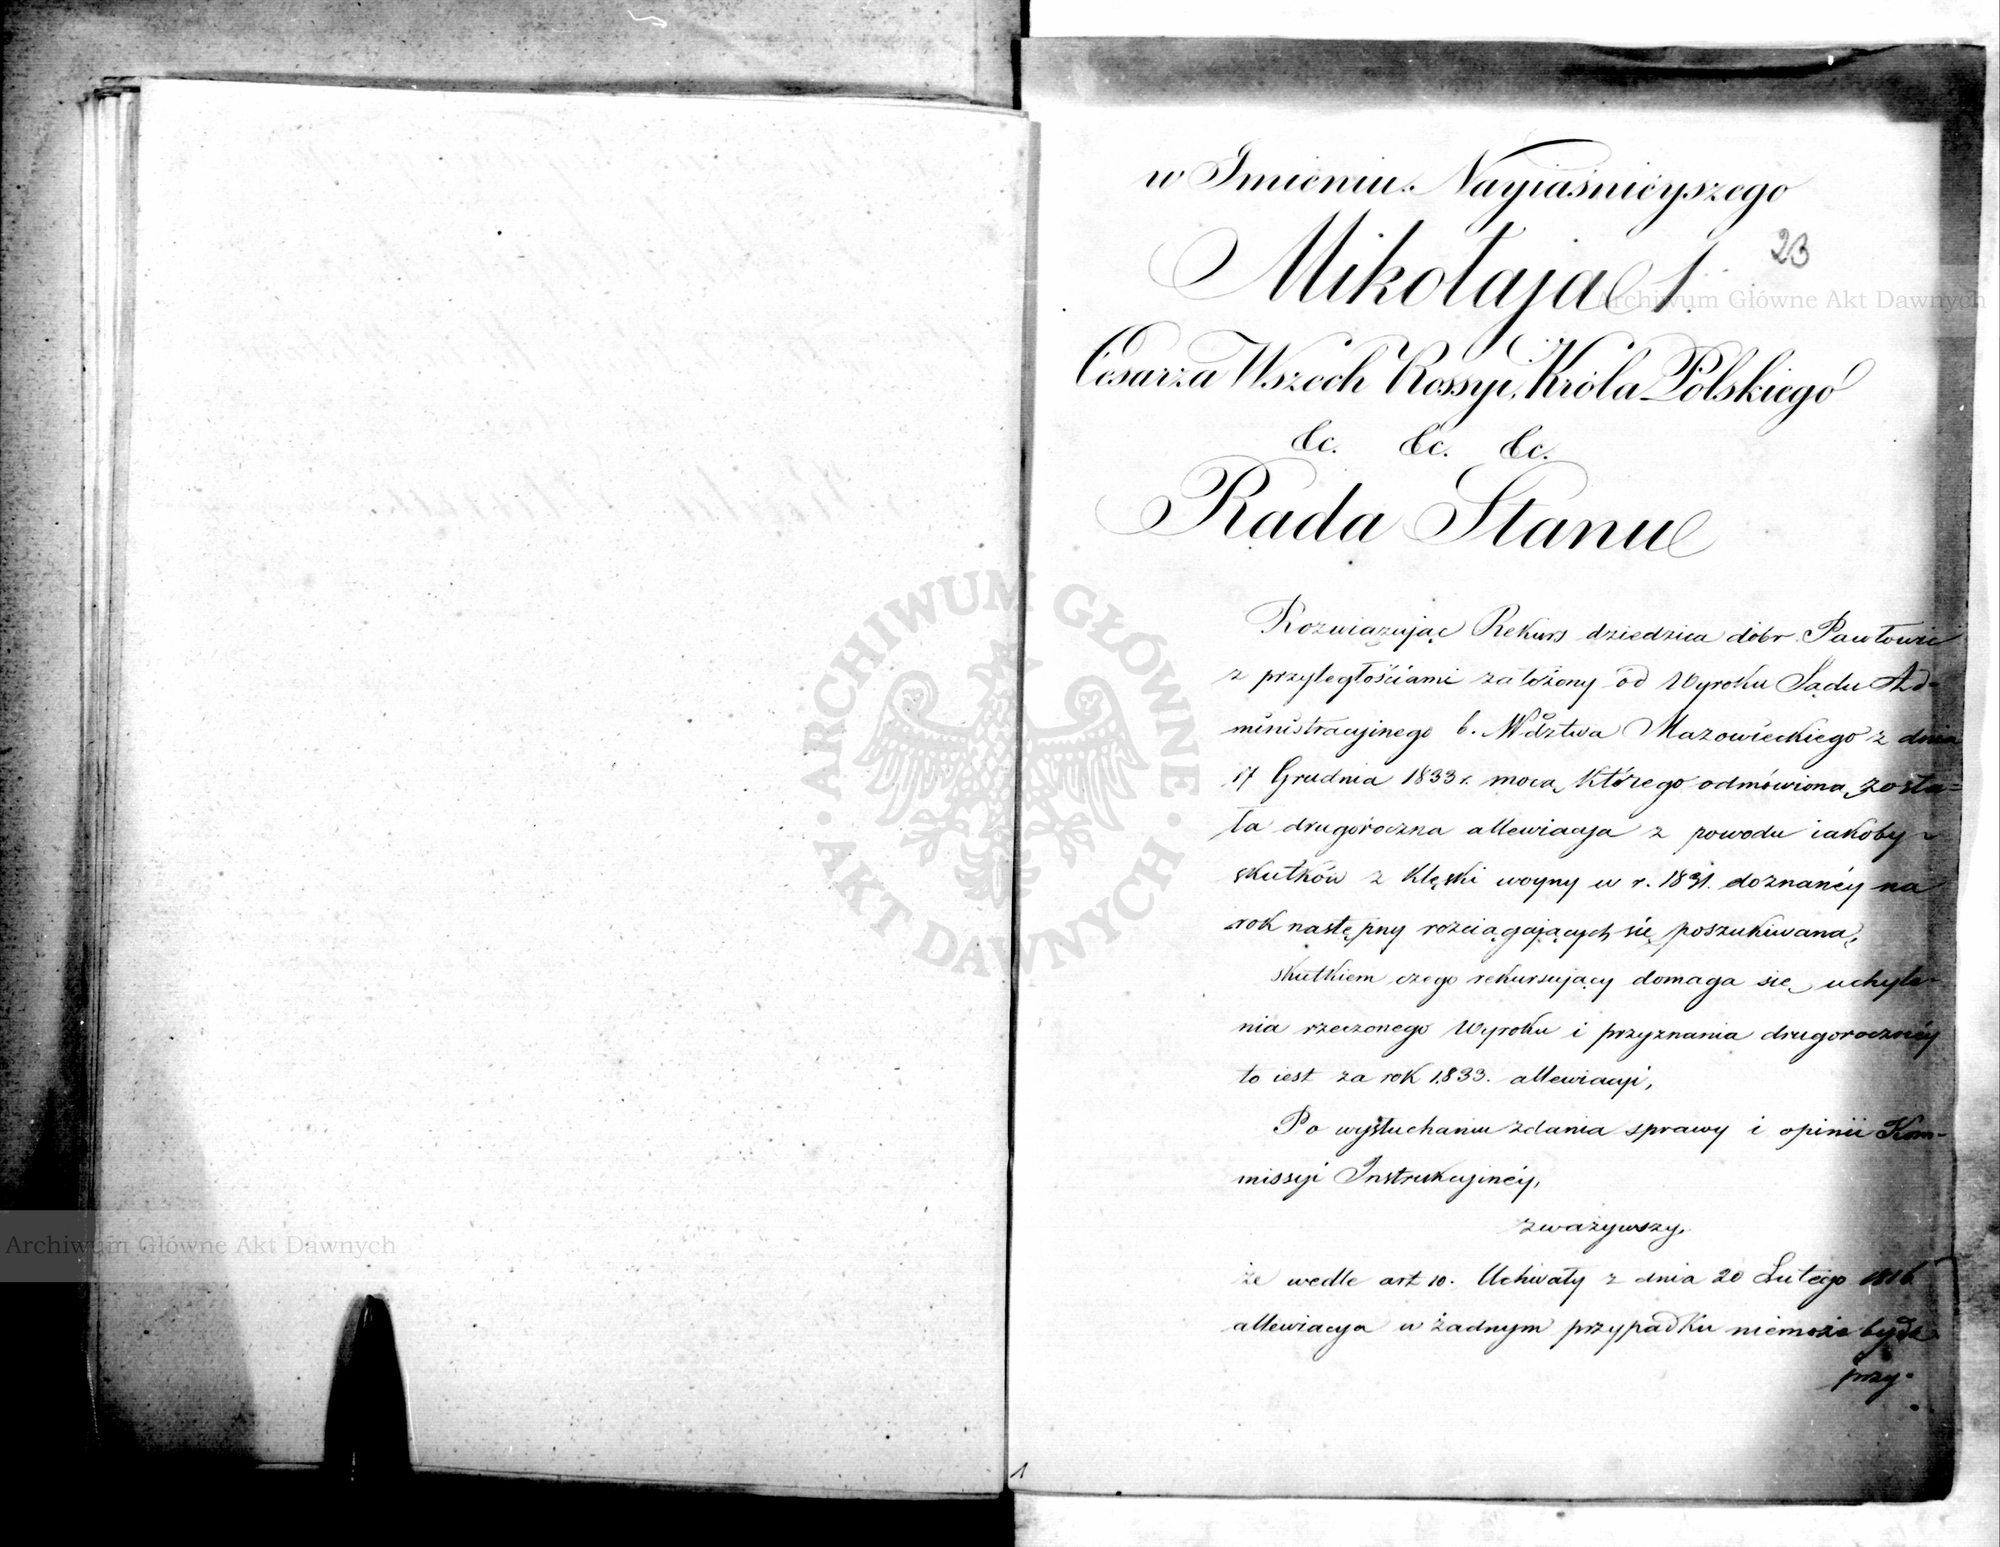 w Imieniu Nayiaśnieyszego
Mikołaja I.
23
Cesarza Wszech Rossyi, Króla Polskiego
&c. &c. &c.
Rada Stanu
Rozwiązując Rekurs dziedzica dóbr Pawłowic
z przyległościami założony od Wyroku Sądu Ad-
ministracyjnego b. Wdztwa Mazowieckiego z dnia
17 Grudnia 1833 r. mocą którego odmówioną zosta=
ła drugoroczna allewiacya z powodu iakoby
skutków z klęski woyny w r. 1831. doznanéy na
rok następny rozciągających się poszukiwana,
skutkiem czego rekursujący domaga się uchyle-
nia rzeczonego Wyroku i przyznania drugorocznéy
to iest za rok 1833. allewiacyi,
Po wysłuchaniu zdania sprawy i opinii Kom-
missyi Instrukcyinéy,
zważywszy,
że wedle art 10. Uchwały z dnia 20 Lutego 1816
allewiacya w żadnym przypadku niemoże bydź
przy-
1
Archiwum Główne Akt Dawnych
Archiwum Główne Akt Dawnych
ARCHIWUM GŁÓWNE · AKT DAWNYCH ·